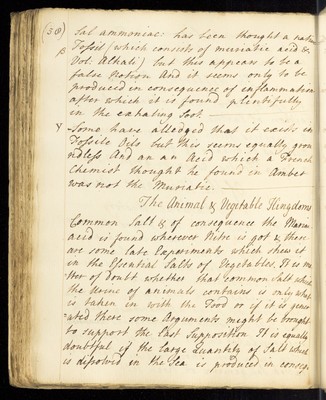 (58)
Sal ammoniac: has been thought a native
β Fossil (which consists of muriatic acid &
Vol: Alkali) but this appears to be a
false Notion And it seems only to be
produced in consequence of inflammation
after which it is found plentifully
in the exhaling soot.
γ Some have alledged that it exists in
Fossils Oils but this seems equally grou
ndless And an an Acid which a French
Chemist thought he found in Amber
was not the Muriatic.
The Animal & Vegetable Kingdoms
Common Salt & of consequence the Marine
acid is found wherever Nitre is got & there
are some late Experiments which shew it
in the Essential Salts of Vegetables. It is m
tter of doubt whether that Common Salt which
the Urine of animals contains is only what
is taken in with the Food or if it is gener
ated there some Arguments might be brought
to support the Last Supposition It is equally
doubtful if the large Quantity of Salt which
is disolved in the Sea is produced in conseq